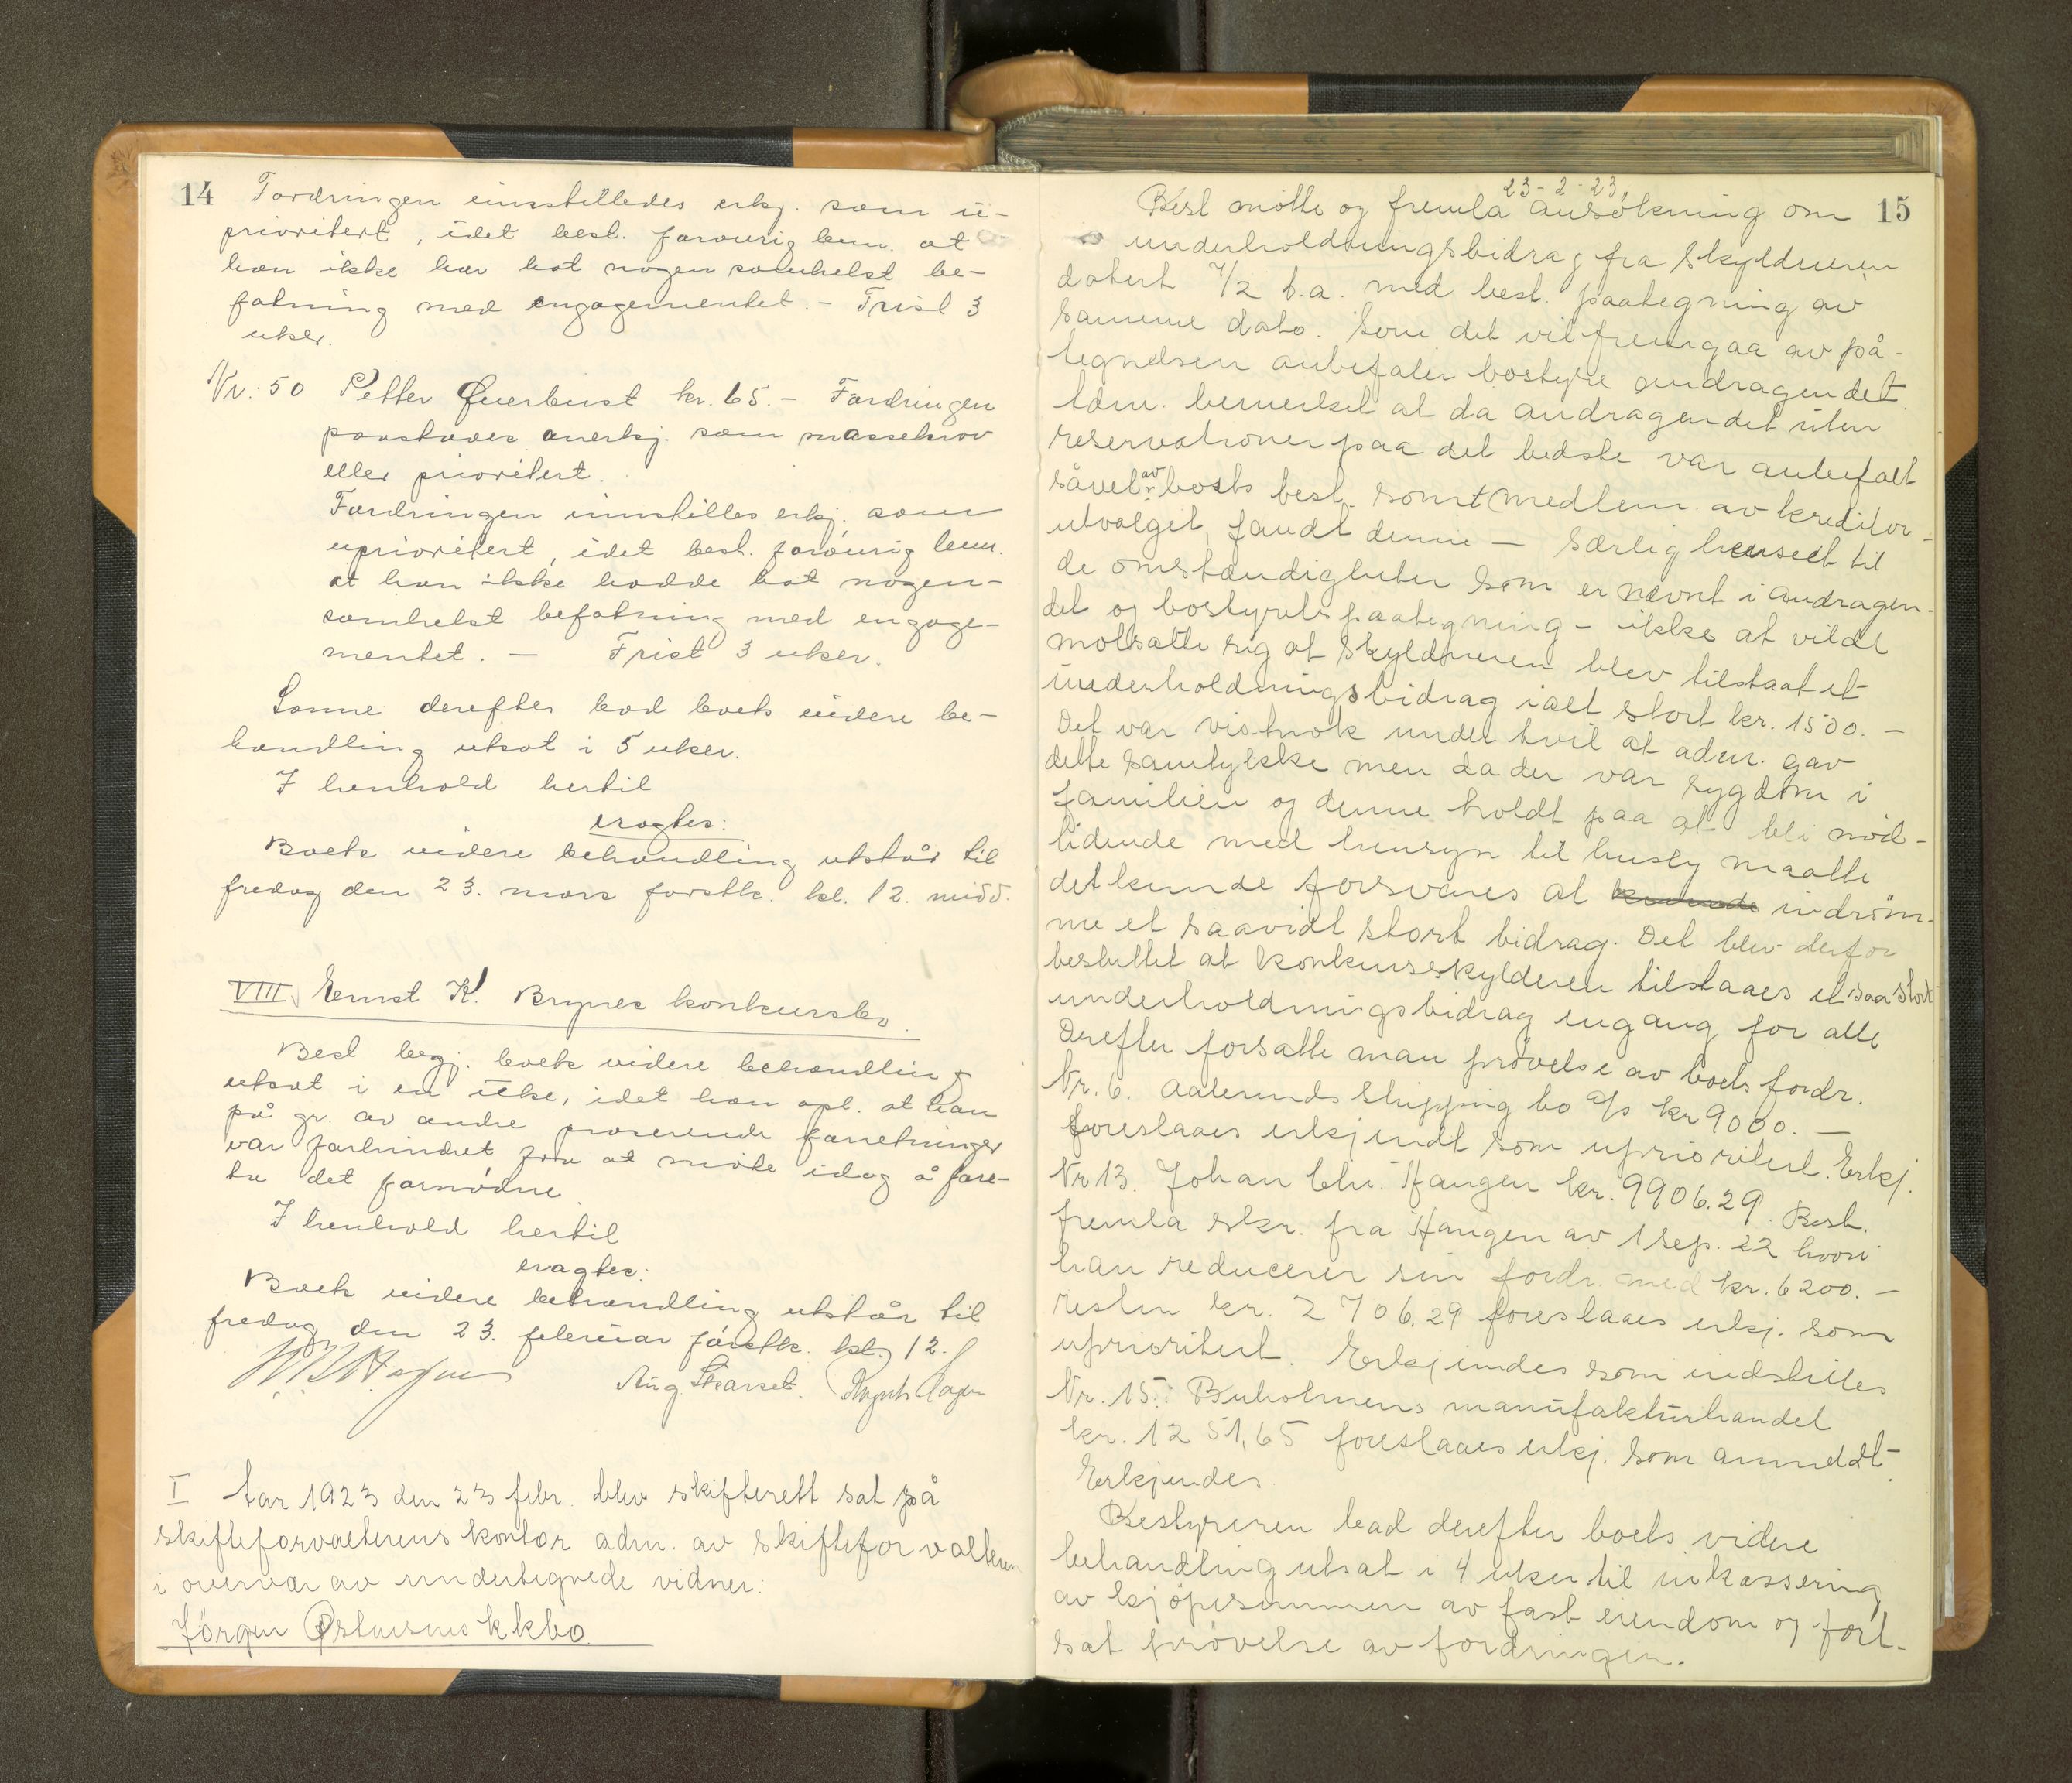 14
Fordringen innstilledes erkj. som u-
prioritert, idet best. forøvrig bem. at
han ikke har hat nogen somhelst be-
fatning med engagementet. - Frist 3
uker.
Nr. 50 Petter Øverbust kr. 65. - Fordringen
paastaaes anerkj. som massekrav
eller prioritert.
Fordringen innstilles erkj. som
uprioritert, idet best. forøvrig bem.
at han ikke hadde hat nogen-
somhelst befatning med engage-
mentet. - Frist 3 uker.
Samme derefter bad boets videre be-
handling utsat i 5 uker.
I henhold hertil
eragtes:
Boets videre behandling utstår til
fredag den 23. mars førstk. kl. 12. midd.
VIII. Ernst K. Brynes konkursbo.
Best begj. boets videre behandling
utsat i en uke, idet han opl. at han
på gr. av andre preserende forretninger
var forhindret fra at møte idag å fore-
ta det fornødne.
I henhold hertil
eragtes:
Boets videre behandling utstår til
fredag den 23. februar førstk. kl. 12.
Aug Skarset.
I Aar 1923 den 23 febr. blev skifterett sat på
skifteforvalterens kontor adm. av skifteforvalteren
i overvær av undertegnede vidner:
Jørgen Østensens kkbo.
23-2-23.
15
Best møtte og fremla ansøkning om
underholdningsbidrag fra skyldneren
datert 7/2 d.a. med best. paategning av
samme dato. Som det vil fremgaa av på-
tegnelsen anbefaler bostyre andragendet.
Adm. bemerket at da andragendet uten
reservationer paa det bedste var anbefalt
såvel av boets best. samt medlem. av kreditor-
utvalget, fandt denne - særlig henseet til
de omstændigheter som er nævnt i andragen-
det og bostyrets paategning - ikke at vilde
motsatte sig at skyldneren blev tilstaat et
underholdningsbidrag ialt stort kr. 1500. -
Det var vistnok under tvil at adm. gav
dette samtykke men da der var sygdom i
familien og denne holdt paa at bli nød-
lidende med hensyn til husly maatte
det kunde forsvares at kunde indrøm-
me et saavidt stort bidrag. Det blev derfor
besluttet at konkursskylderen tilstaaes et saa stort
underholdningsbidrag engang for alle
Derefter forsatte man prøvelse av boets fordr.
Nr. 6. Aalesunds Shipping bo a/s kr 9000. -
foreslaaes erkjendt som uprioritert. Erkj.
Nr 13. Johan Chr. Haugen kr. 9906.29. Best.
fremla skr. fra Haugen av 1 sep. 22 hvori
han reducerer sin fordr. med kr. 6200. -
Resten kr. 2706.29 foreslaaes erkj. som
uprioritert. Erkjendes som indstilles
Nr. 15: Buholmens manufakturhandel
kr. 1251,65 foreslaaes erkj. som anmeldt.
Erkjendes.
Bestyreren bad derefter boets videre
behandling utsat i 4 uker til inkassering
av kjøpesummen av fast eiendom og fort-
sat prøvelse av fordringen.